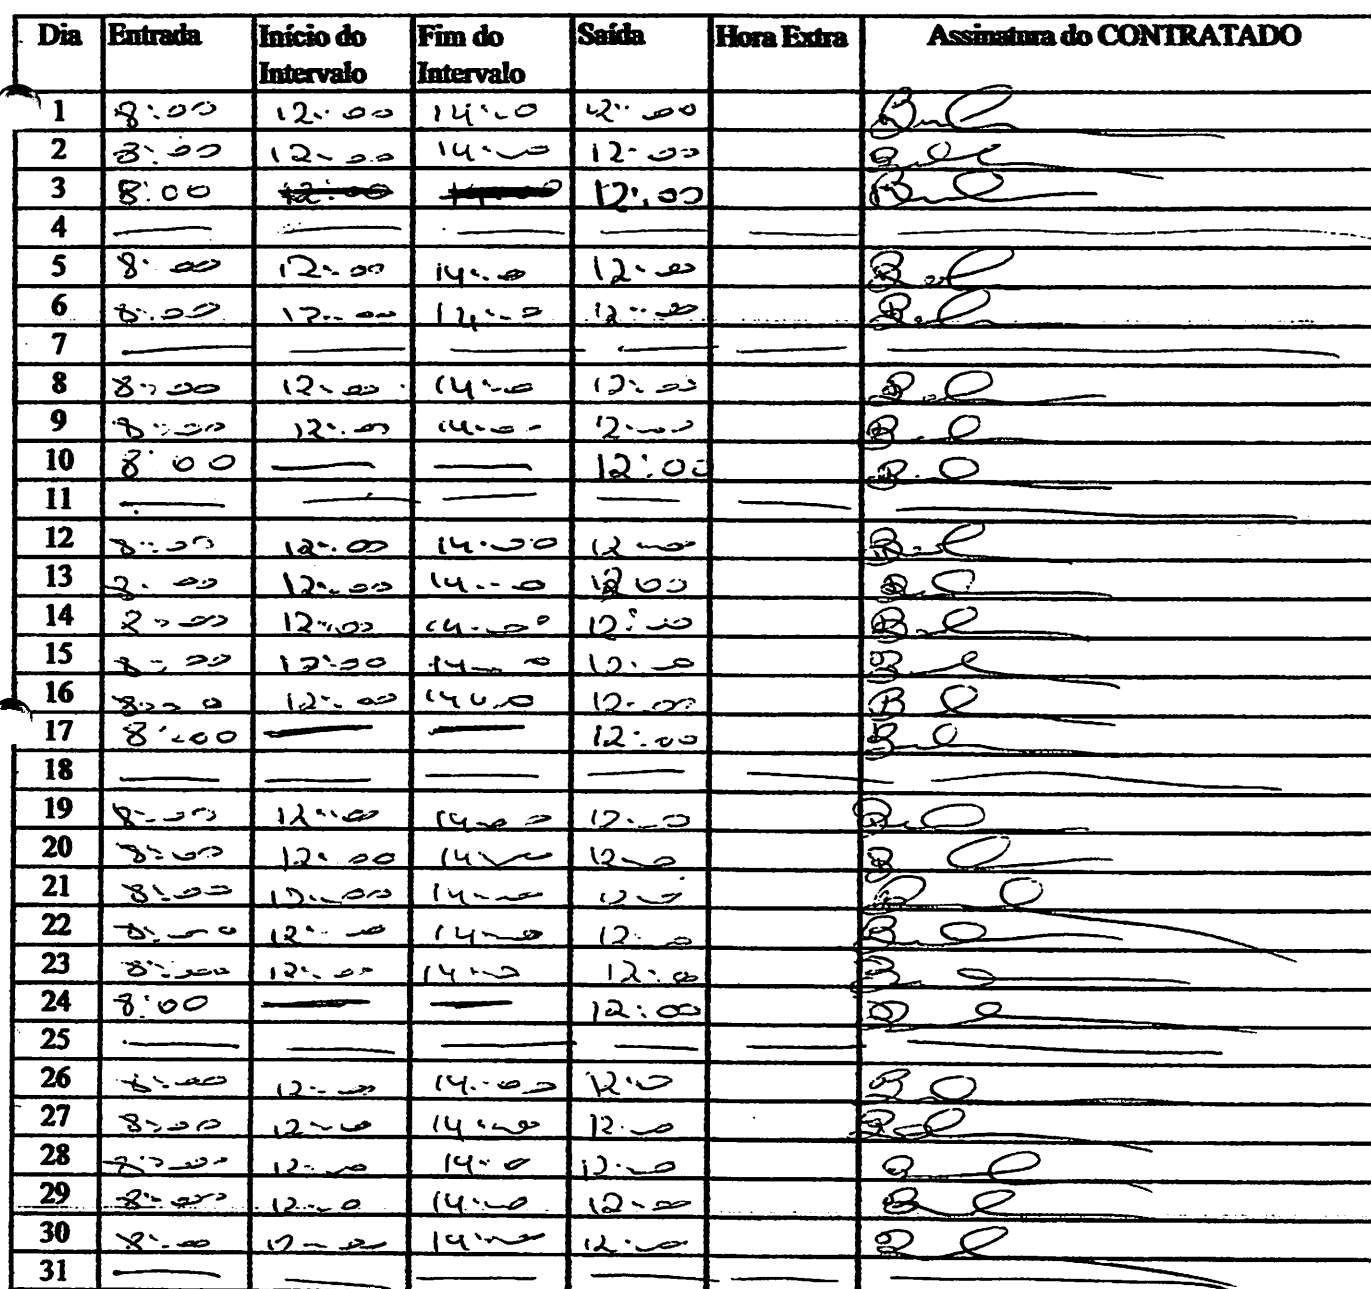 Dia Entrada Início do Intervalo Fim do Intervalo Saída Hora Extra Assinatura do CONTRATADO
1 8:00 12:00 14:00 12:00
2 8:00 12:00 14:00 12:00
3 8:00 12:00 14:00 12:00
4 — — — — — —
5 8:00 12:00 14:00 12:00
6 8:00 12:00 14:00 12:00
7 — — — — — —
8 8:00 12:00 14:00 12:00
9 8:00 12:00 14:00 12:00
10 8:00 — — 12:00
11 — — — — — —
12 8:00 12:00 14:00 12:00
13 8:00 12:00 14:00 12:00
14 8:00 12:00 14:00 12:00
15 8:00 12:00 14:00 12:00
16 8:00 12:00 14:00 12:00
17 8:00 — — 12:00
18 — — — — — —
19 8:00 12:00 14:00 12:00
20 8:00 12:00 14:00 12:00
21 8:00 12:00 14:00 12:00
22 8:00 12:00 14:00 12:00
23 8:00 12:00 14:00 12:00
24 8:00 — — 12:00
25 — — — — — —
26 8:00 12:00 14:00 12:00
27 8:00 12:00 14:00 12:00
28 8:00 12:00 14:00 12:00
29 8:00 12:00 14:00 12:00
30 8:00 12:00 14:00 12:00
31 — — — — — —